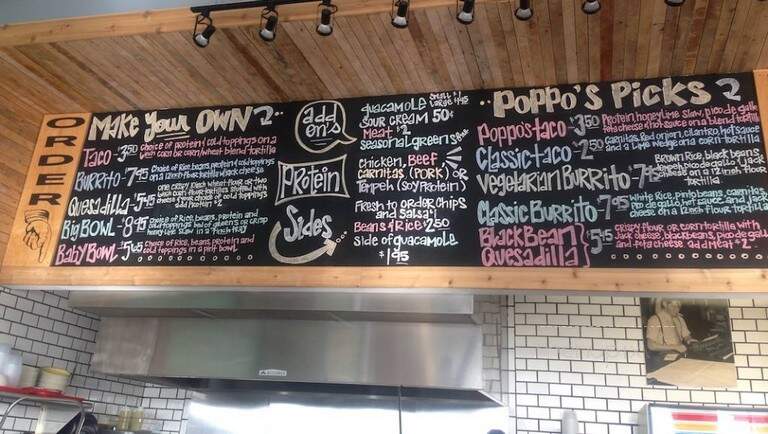 ORDER
Make Your OWN
Taco - 3.50 Choice of protein / cold toppings on a
corn or corn/wheat blend tortilla
Burrito - 7.95 Choice of Rice, beans, protein / cold toppings
on a 12inch flour tortilla w/ Jack cheese
Quesadilla - 5.45
your choice of cold toppings
Big Bowl - 8.45 Choice of Rice, beans, protein and
cold toppings
Baby Bowl - 5.45 Choice of Rice, beans, protein and
cold toppings in a pint bowl.
add on's
guacamole small $1 large $1.95
sour cream 50¢
Meat $2
seasonal greens
Protein
Chicken, Beef,
Carnitas (Pork) or
Tempeh (Soy Protein)
Sides
Fresh to order Chips
and Salsa
Beans & Rice $2.50
side of guacamole
$1.95
Poppo's Picks
Poppo's taco - 3.50 Protein, honey lime slaw, pico de gallo
feta cheese / hot sauce on a blend tortilla
Classic taco - 2.50 Carnitas, Red onion, cilantro, hot sauce
and a Lime wedge on a corn tortilla
Vegetarian Burrito - 7.95 Brown Rice, black beans,
pico de gallo / Jack
cheese on a 12 inch flour
tortilla
Classic Burrito - 7.95 White Rice, pinto beans, carnitas,
pico de gallo, hot sauce, and Jack
cheese on a 12inch flour tortilla
Black Bean
Quesadilla 5.45 crispy flour or corn tortilla with
Jack cheese, black beans, pico de gallo
and feta cheese add Meat $2